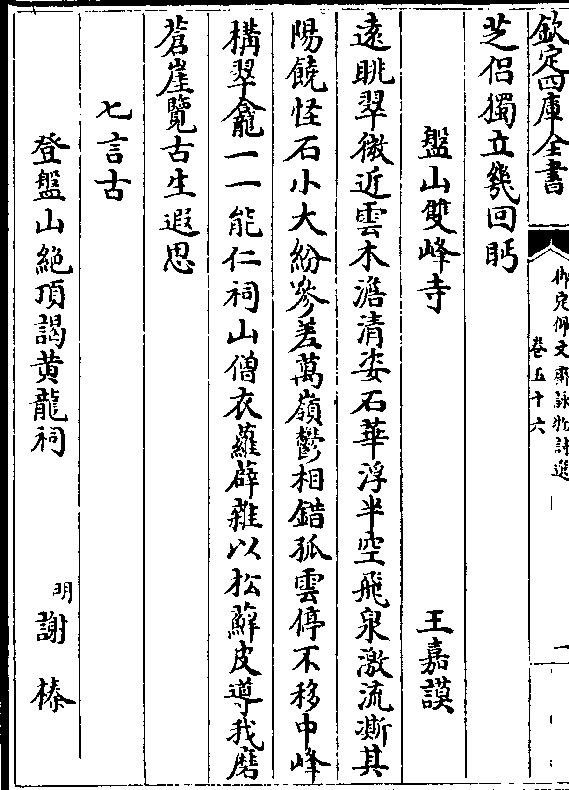 欽定四庫全書
御定佩文齋詠物詩選
卷五十六
一
芝侣獨立幾回眄
盤山雙峰寺 王嘉謨
遠眺翠微近雲木澹清姿石華浮半空飛泉激流澌其
陽饒怪石小大紛參差萬嶺鬱相錯孤雲停不移中峰
構翠龕一一能仁祠山僧衣蘿薜雜以松蘚皮導我磨
蒼崖覽古生遐思
七言古
登盤山絶頂謁黄龍祠 明 謝榛